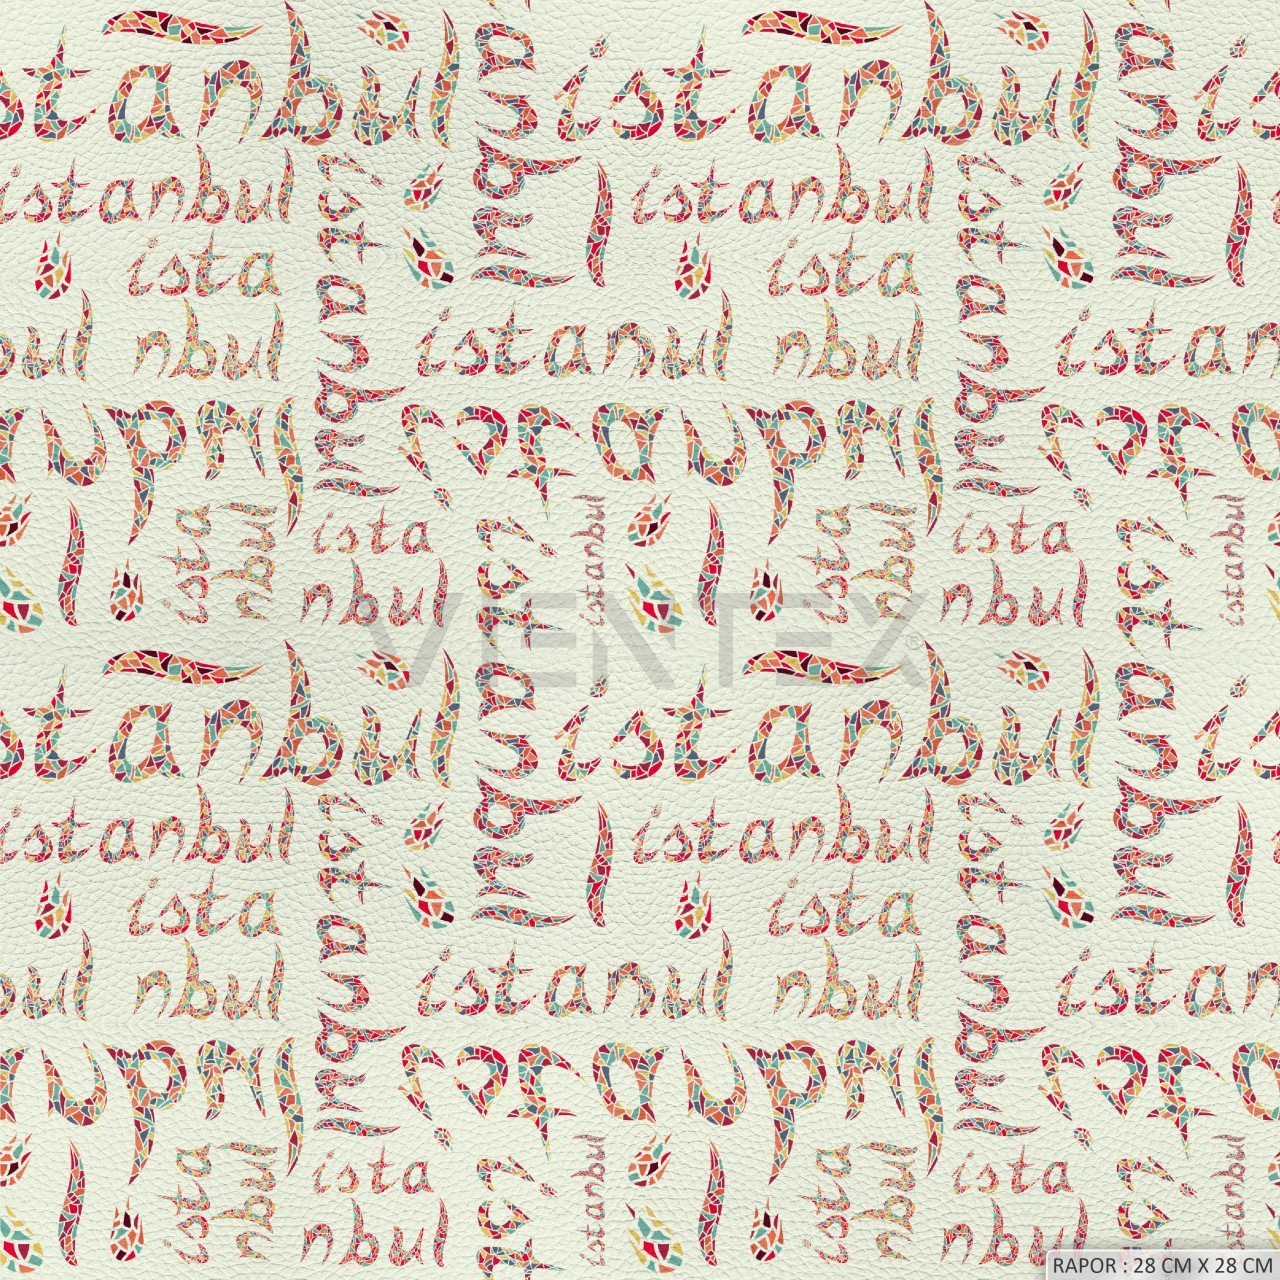 istanbul
istanbul
istanbul
istanbul
istanbul
ista
ista
nbul
istanbul
nbul
istanbul
istanbul
istanbul
ista
nbul
istanbul
ista
nbul
ista
nbul
istanbul
ista
nbul
VIENTEX®
istanbul
istanbul
istanbul
istanbul
istanbul
ista
ista
nbul
istanbul
nbul
istanbul
istanbul
istanbul
ista
nbul
istanbul
ista
nbul
ista
nbul
istanbul
ista
nbul
RAPOR : 28 CM X 28 CM